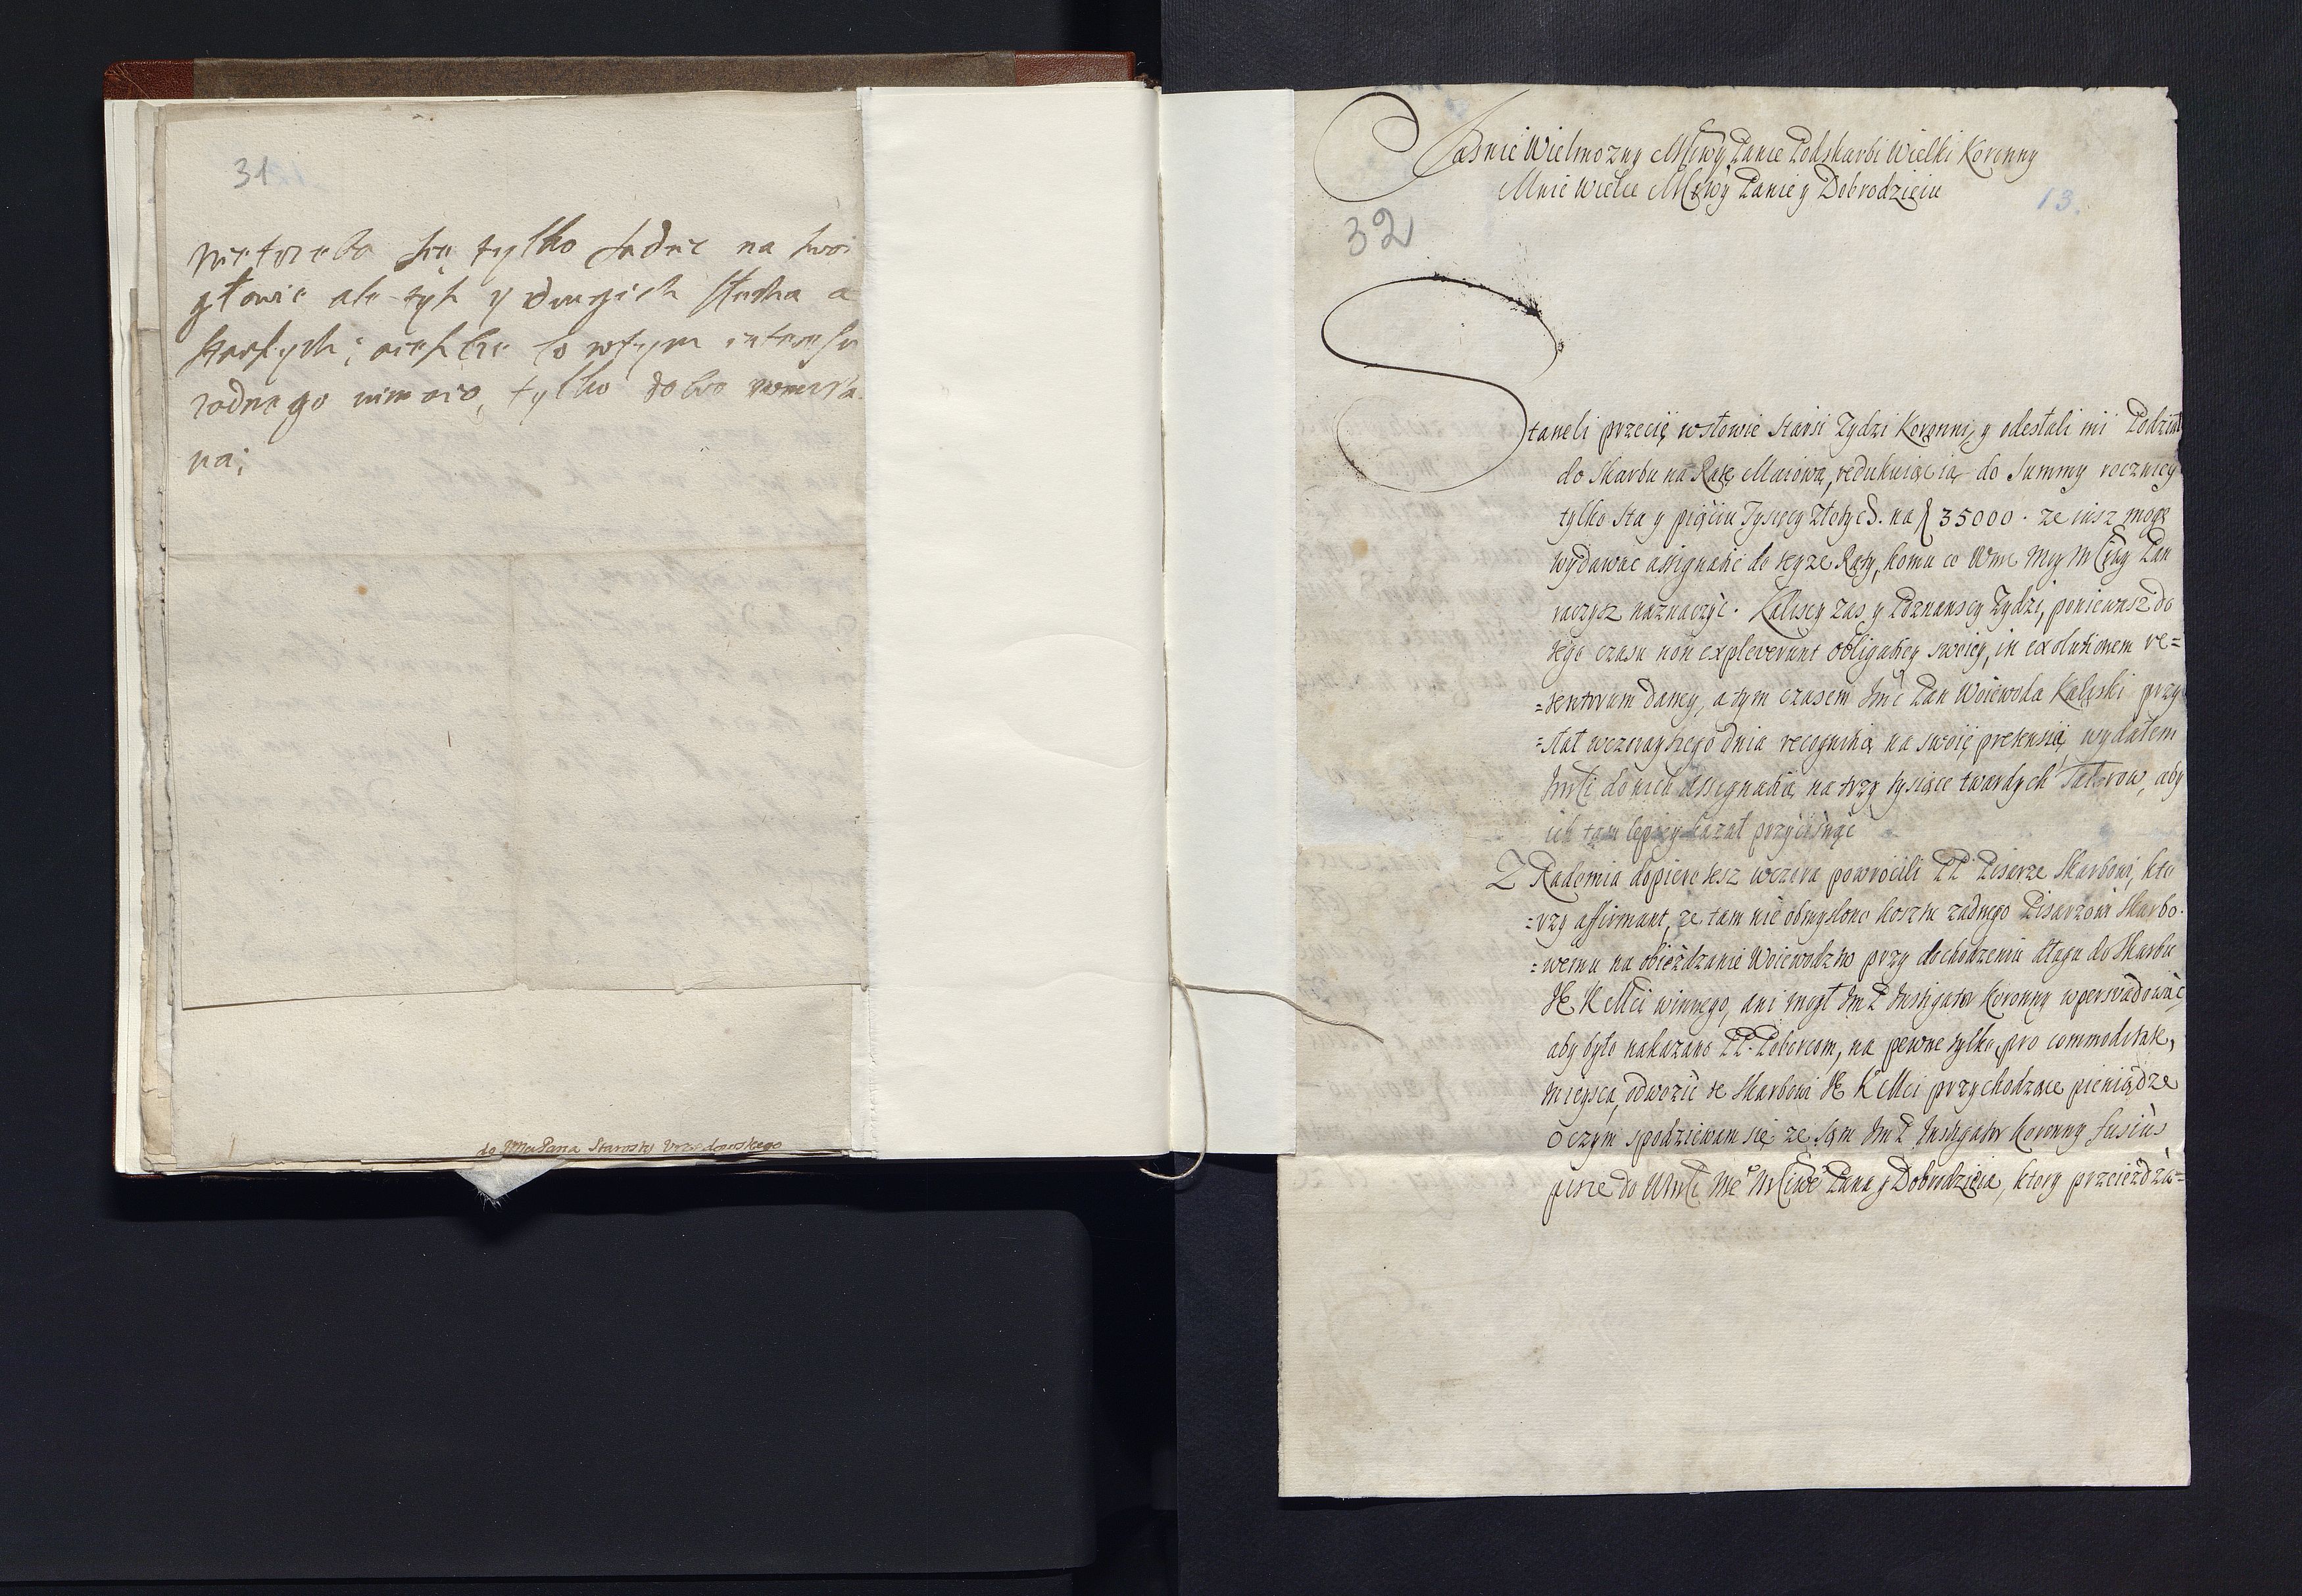 31
nietrzeba się tylko sadzic na swoi
głowie ale tysz y drugich słucha a
starszych; ieszcze co wtym interesu
zodnego nimaio, tylko dobro
na;
do JMci Pana Starosty Vrzędowskiego
Jasnie Wielmozny Mściwy Panie Podskarbi Wielki Koronny
Mnie Wielce Mściwy Panie y Dobrodzieiu
13.
32
Staneli przecię wsłowie starsi Zydzi Koronni, y odesłali mi Podział
do Skarbu na Ratę Maiową, redukuiąc ią do Summy roczney
tylko sta y pięciu Tysięcy Złotych. na f 35000. ze iusz mogę
wydawac assignatie do teyze Raty, komu co Wmc Moy Mściwy Pan
raczysz naznaczyć. Kaliscy zas y Poznanscy Zydzi, poniewasz do
tego czasu non expleverunt obligatiey swoiey, in exolutionem re=
=tentorum daney, a tym czasem Jmć Pan Woiewoda Kaliski przy
=słał wczorayszego dnia recognitią na swoię pretensią, wydałem
Jmści do nich Assignatią na trzy tysiące twardych Talerow, aby
ich tam lepiey kazał przycisnąć
Z Radomia dopiero tesz wczora powrocili PP Pisarze Skarbowi, kto
=rzy affirmant, ze tam nie obmyslono kosztu zadnego Pisarzowi Skarbo.
=wemu na obiezdzanie Woiewodztw przy dochodzeniu długu do Skarbu
JE K Mci winnego, ani mogł Jm P Instigator Koronny wperswadować,
aby było nakazano PP. Poborcom, na pewne tylko, pro commoditate,
mieysca, odwozić te Skarbowi JE K Mci przychodzące pieniądze
o czym spodziewam się ze sam Jm P Instigator Koronny fusius
pisze do Wmści Mě Mściwě Pana y Dobrodzieia, ktory przeiezdza=